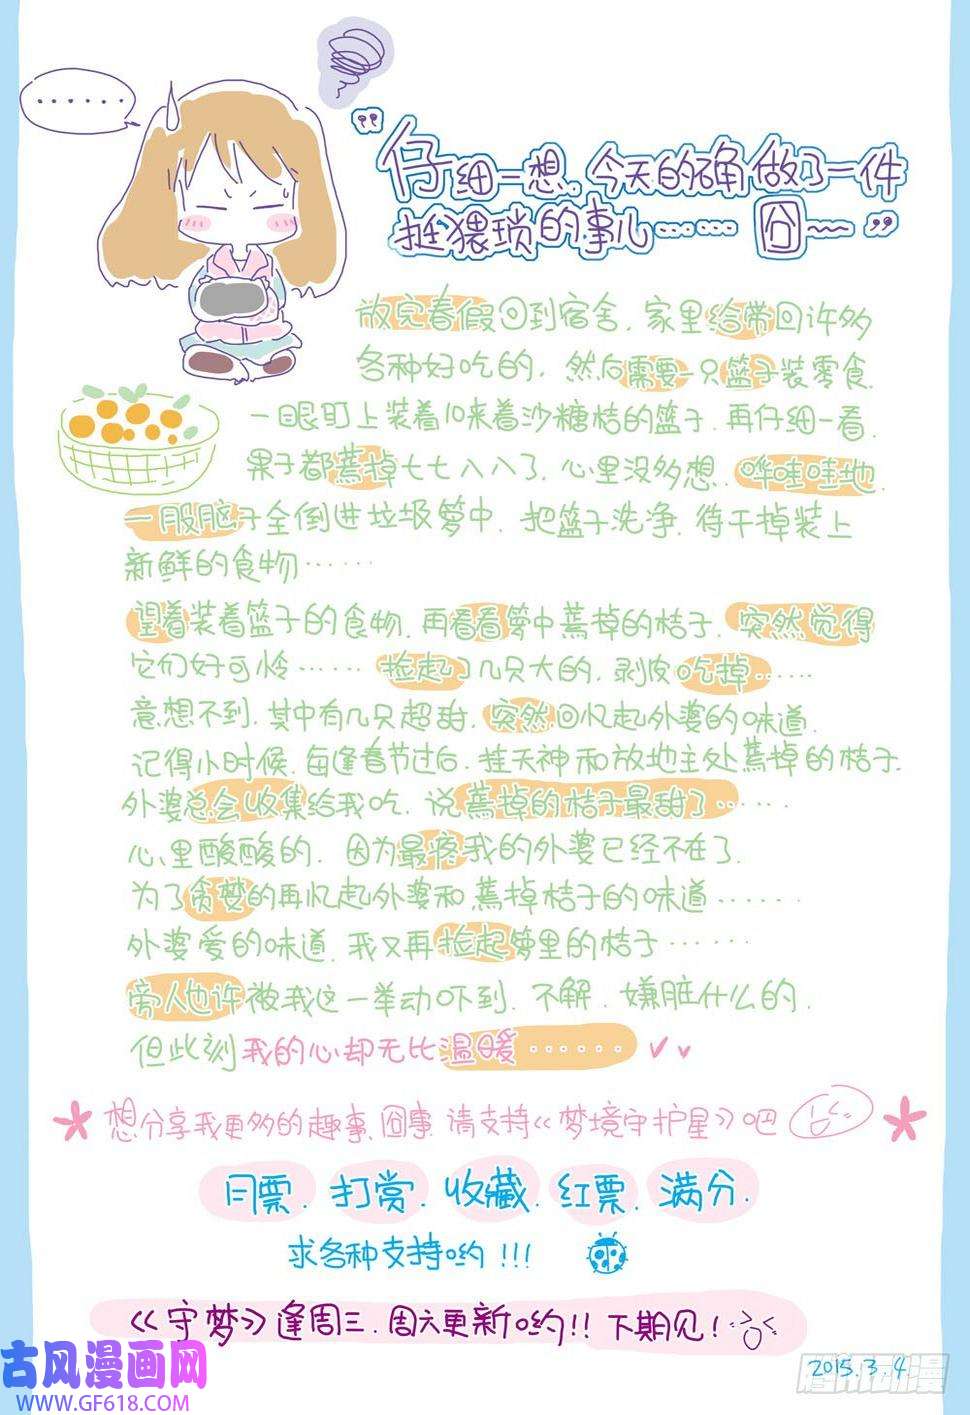 ......
“仔细一想.今天的确做了一件
挺猥琐的事儿…… 囧~”
放完春假回到宿舍.家里给带回许多
各种好吃的.然后需要一只篮子装零食.
一眼盯上装着10来着沙糖桔的篮子.再仔细一看.
果子都蔫掉七七八八了.心里没多想.哗哇哇地.
一股脑子全倒进垃圾箩中.把篮子洗净.待干掉装上
新鲜的食物……
望着装着篮子的食物.再看看箩中蔫掉的桔子.突然觉得
它们好可怜……捡起了几只大的.剥皮吃掉……
意想不到.其中有几只超甜.突然回忆起外婆的味道.
记得小时候.每逢春节过后.挂天神和放地主处蔫掉的桔子.
外婆总会收集给我吃.说蔫掉的桔子最甜了……
心里酸酸的.因为最疼我的外婆已经不在了.
为了贪婪的再忆起外婆和蔫掉桔子的味道……
外婆爱的味道.我又再捡起箩里的桔子……
旁人也许被我这一举动吓到.不解.嫌脏什么的.
但此刻我的心却无比温暖……
想分享我更多的趣事、囧事.请支持《梦境守护星》吧
月票.打赏.收藏.红票.满分.
求各种支持哟!!!
《守梦》逢周三.周六更新哟!!下期见!
2015.3.4
古风漫画网
WWW.GF618.COM